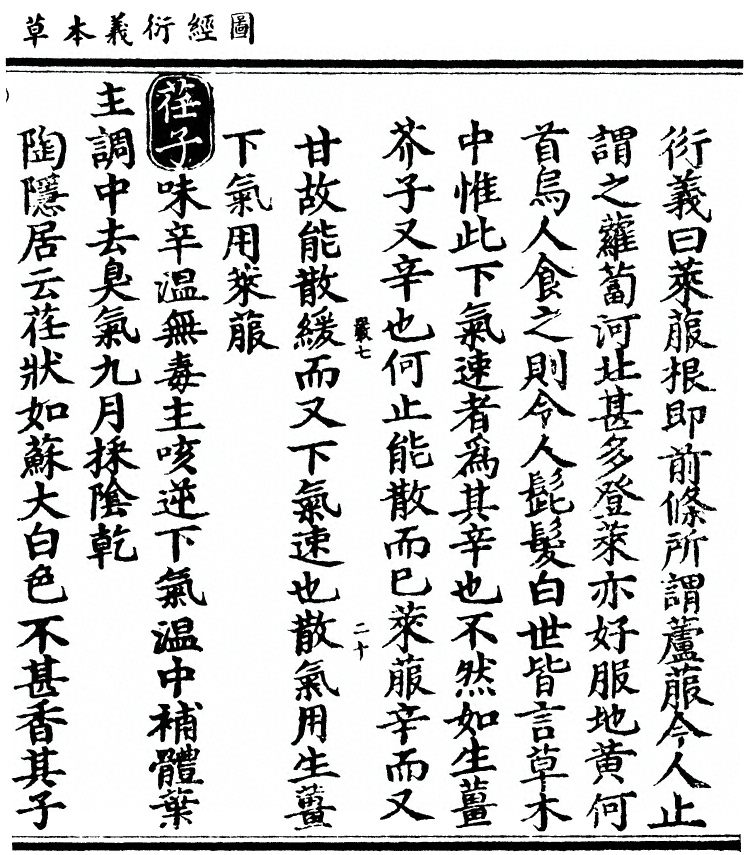 圖經衍義本草
衍義曰萊菔根即前條所謂蘆菔今人止
謂之蘿蔔河北甚多登萊亦好服地黃何
首烏人食之則令人髭髮白世皆言草木
中惟此下氣速者為其辛也不然如生薑
芥子又辛也何止能散而已萊菔辛而又
嚴七 二十
甘故能散緩而又下氣速也散氣用生薑
下氣用萊菔
荏子味辛溫無毒主咳逆下氣溫中補體葉
主調中去臭氣九月採陰乾
陶隱居云荏狀如蘇大白色不甚香其子